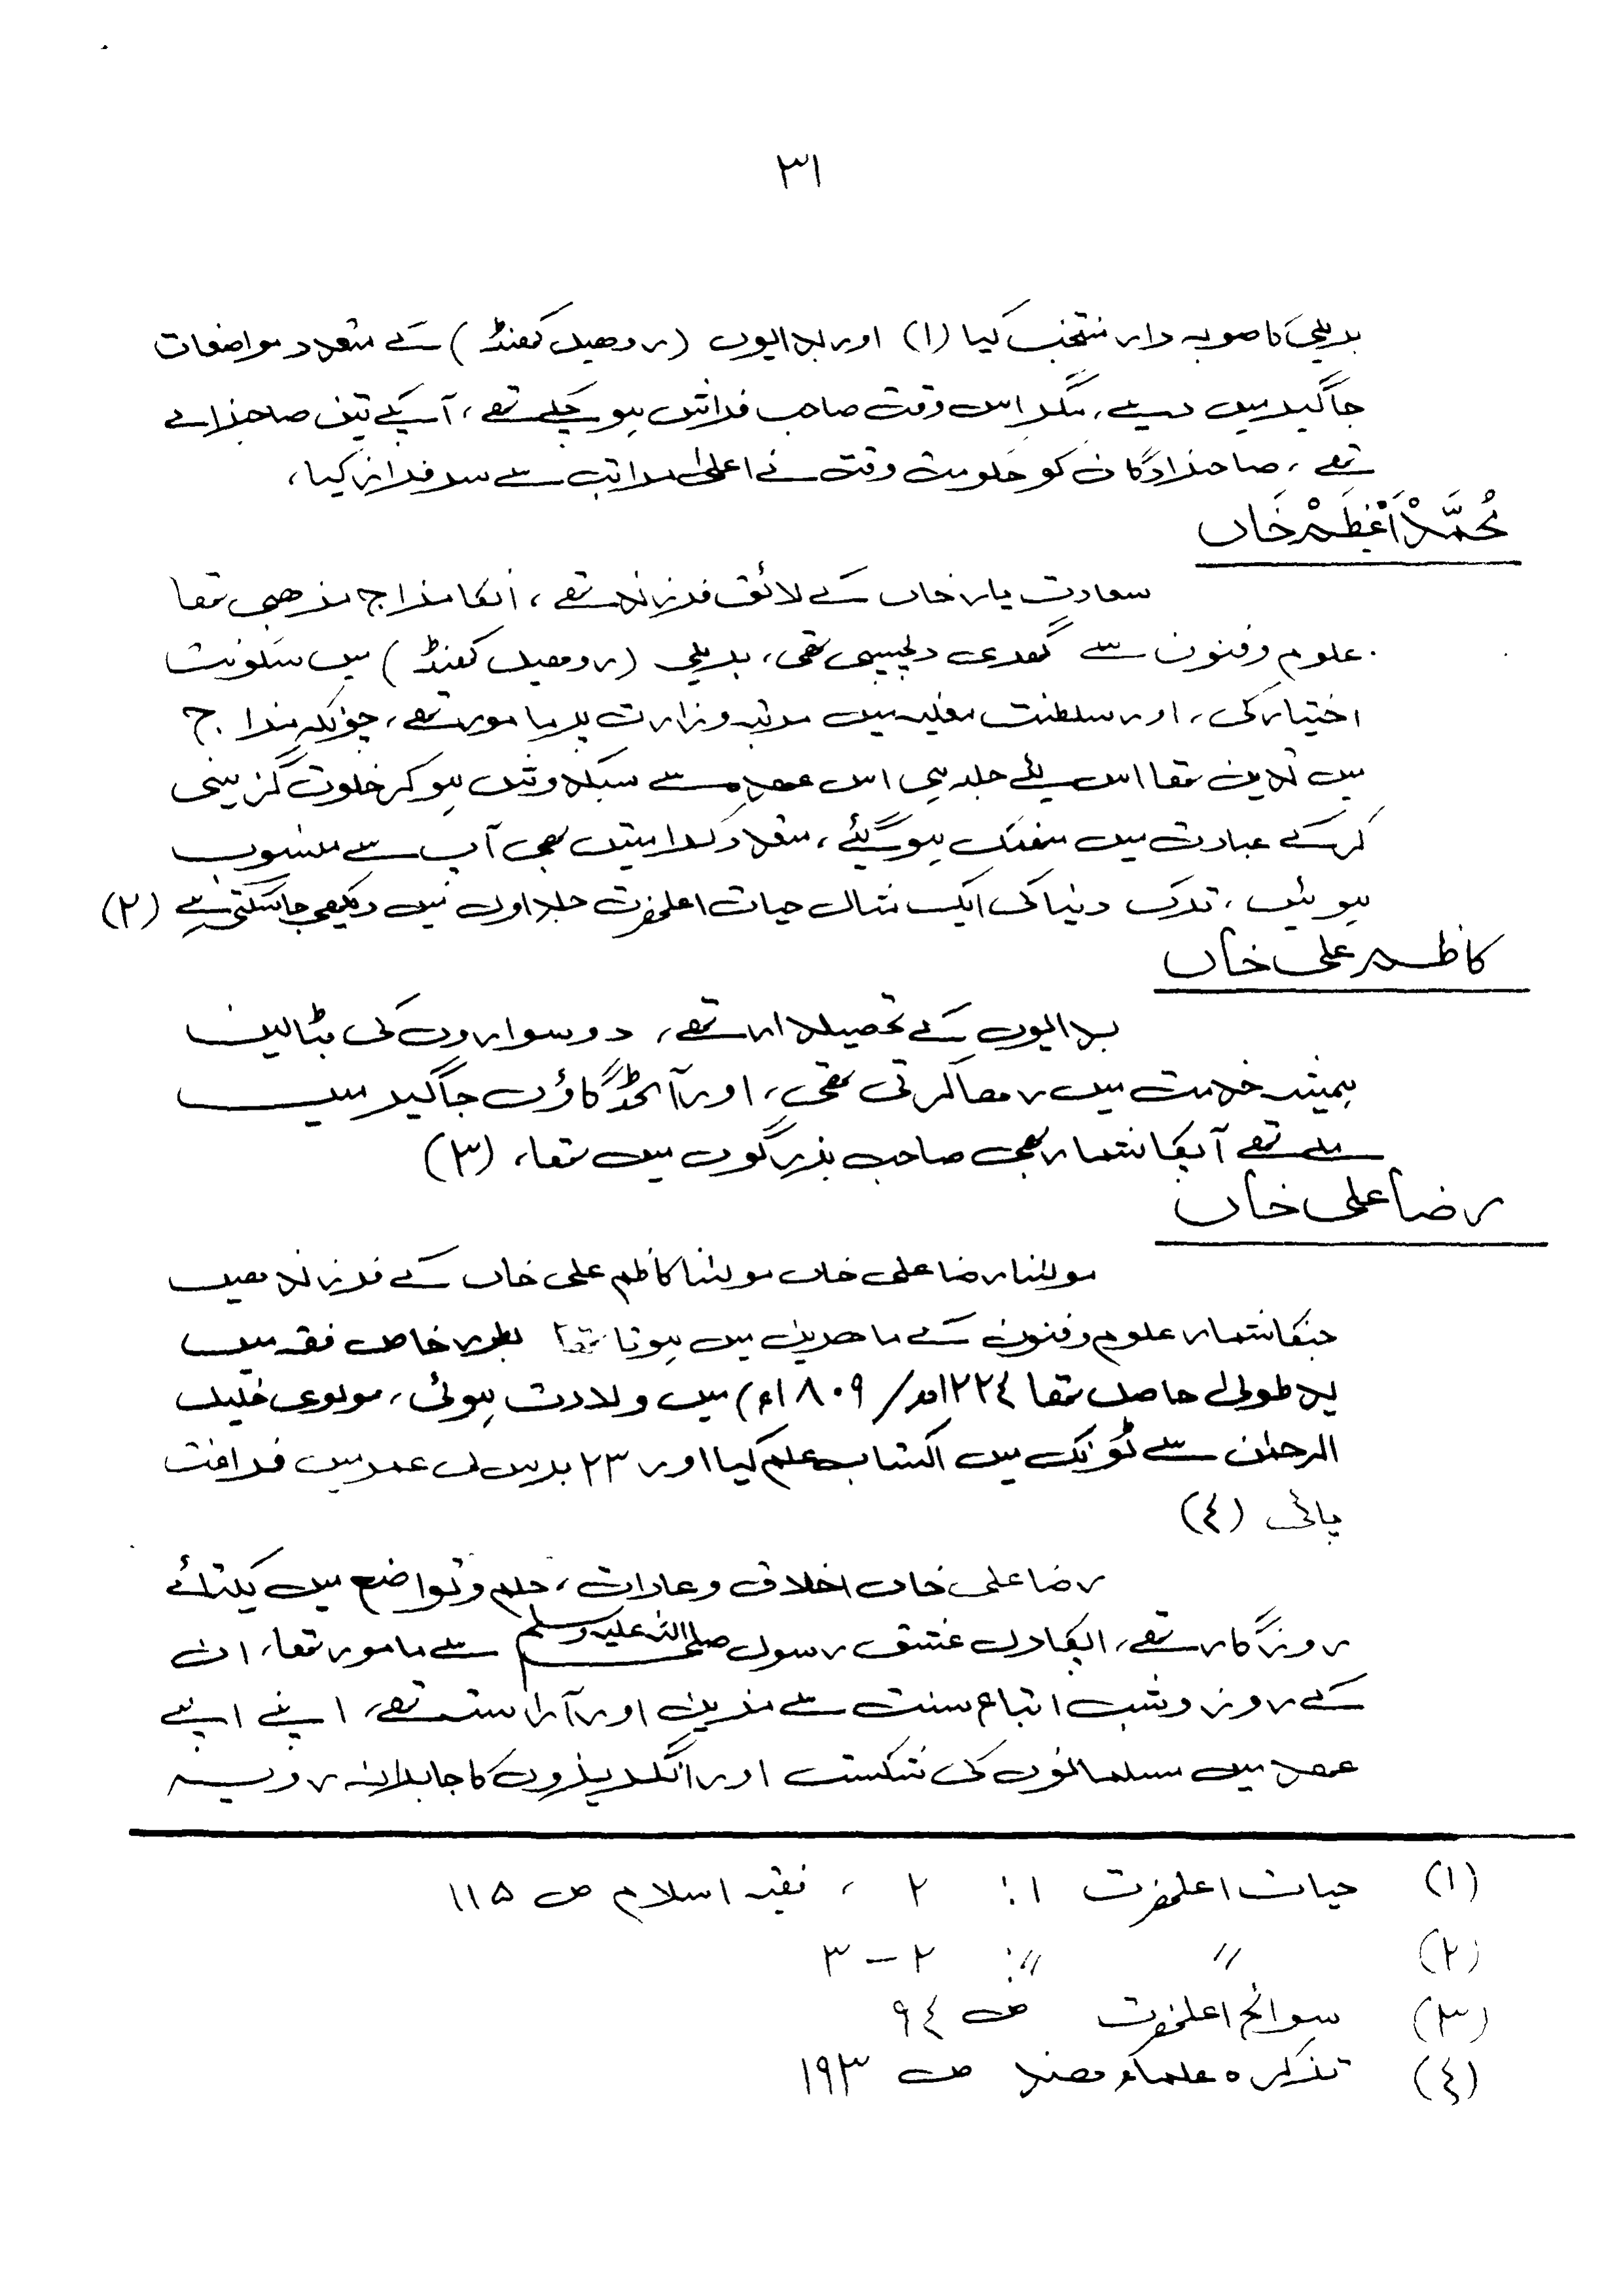 ٣١
بریلی کا صوبہ دار منتخب کیا (١) اور بدایوں (روھیل کھنڈ) کے متعدد مواضعات
جاگیر میں دیے، مگر اس وقت صاحب فراش ہو چکے تھے، آپکے تین صاحبزادے
تھے، صاحبزادگان کو حکومت وقت نے اعلیٰ مراتب سے سرفراز کیا،
مُحمَّدْ اَعْظَمْ خَاں
سعادت یار خاں کے لائق فرزند تھے، انکا مزاج مذھبی تھا
علوم وفنون سے گھری دلچسپی تھی، بریلی (روھیل کھنڈ) میں سکونت
اختیار کی، اور سلطنت مغلیہ میں مرتبہ وزارت پر مامور تھے، چونکہ مزاج
میں تدین تھا اس لئے جلد ہی اس عھدہ سے سبکدوش ہو کر خلوت گزینی
کرکے عبادت میں منہمک ہوگئے، متعدد کرامتیں بھی آپ سے منسوب
ہوئیں، ترک دنیا کی ایک مثال حیات اعلحضرت جلد اول میں دیکھی جاسکتی ہے (٢)
کاظم علی خاں
بدایوں کے تحصیلدار تھے، دوسواروں کی بٹالین
ہمیشہ خدمت میں رھا کرتی تھی، اور آٹھ گاؤں جاگیر میں
ملے تھے آپکا شمار بھی صاحب بزرگوں میں تھا، (٣)
رضا علی خاں
مولٰنا رضا علی خاں مولٰنا کاظم علی خاں کے فرزند ھیں
جنکا شمار علوم وفنون کے ماھرین میں ہوتا تھا بطور خاص فقہ میں
ید طولیٰ حاصل تھا ١٢٢٤ھ/ ١٨٠٩ء) میں ولادت ہوئی، مولوی خلیل
الرحمٰن سے ٹونک میں اکتساب علم کیا اور ٢٣ برس کی عمر میں فراغت
پائی (٤)
رضا علی خاں اخلاق وعادات، حلم وتواضع میں یکتائے
روزگار تھے، انکا دل عشق رسول صلی اللہ علیہ وسلم سے مامور تھا، ان
کے روز وشب اتباع سنت سے مزین اور آراستہ تھے، اپنے اپنے
عھد میں مسلمانوں کی شکست اور انگریزوں کا جابرانہ رویہ
(١) حیات اعلحضرت ١: ٢ ، فقیہ اسلام ص ١١٥
(٢) // //: ٢ – ٣
(٣) سوانح اعلحضرت ص ٩٤
(٤) تذکرہ علماء ھند ص ١٩٣